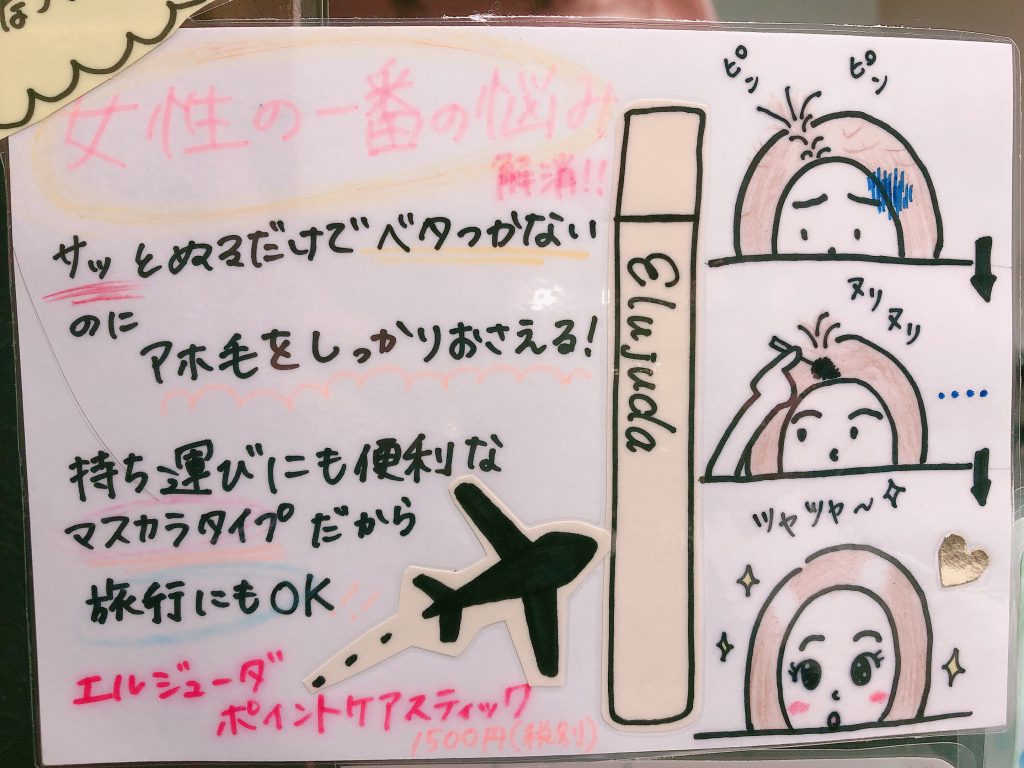 女性の一番の悩み
解消!!
サッとぬるだけでベタつかない
のに
アホ毛をしっかりおさえる!
持ち運びにも便利な
マスカラタイプだから
旅行にもOK!!
エルジューダ
ポイントケアスティック
1500円(税別)
Elujuda
ピン ピン
ヌリヌリ
ツヤツヤ〜